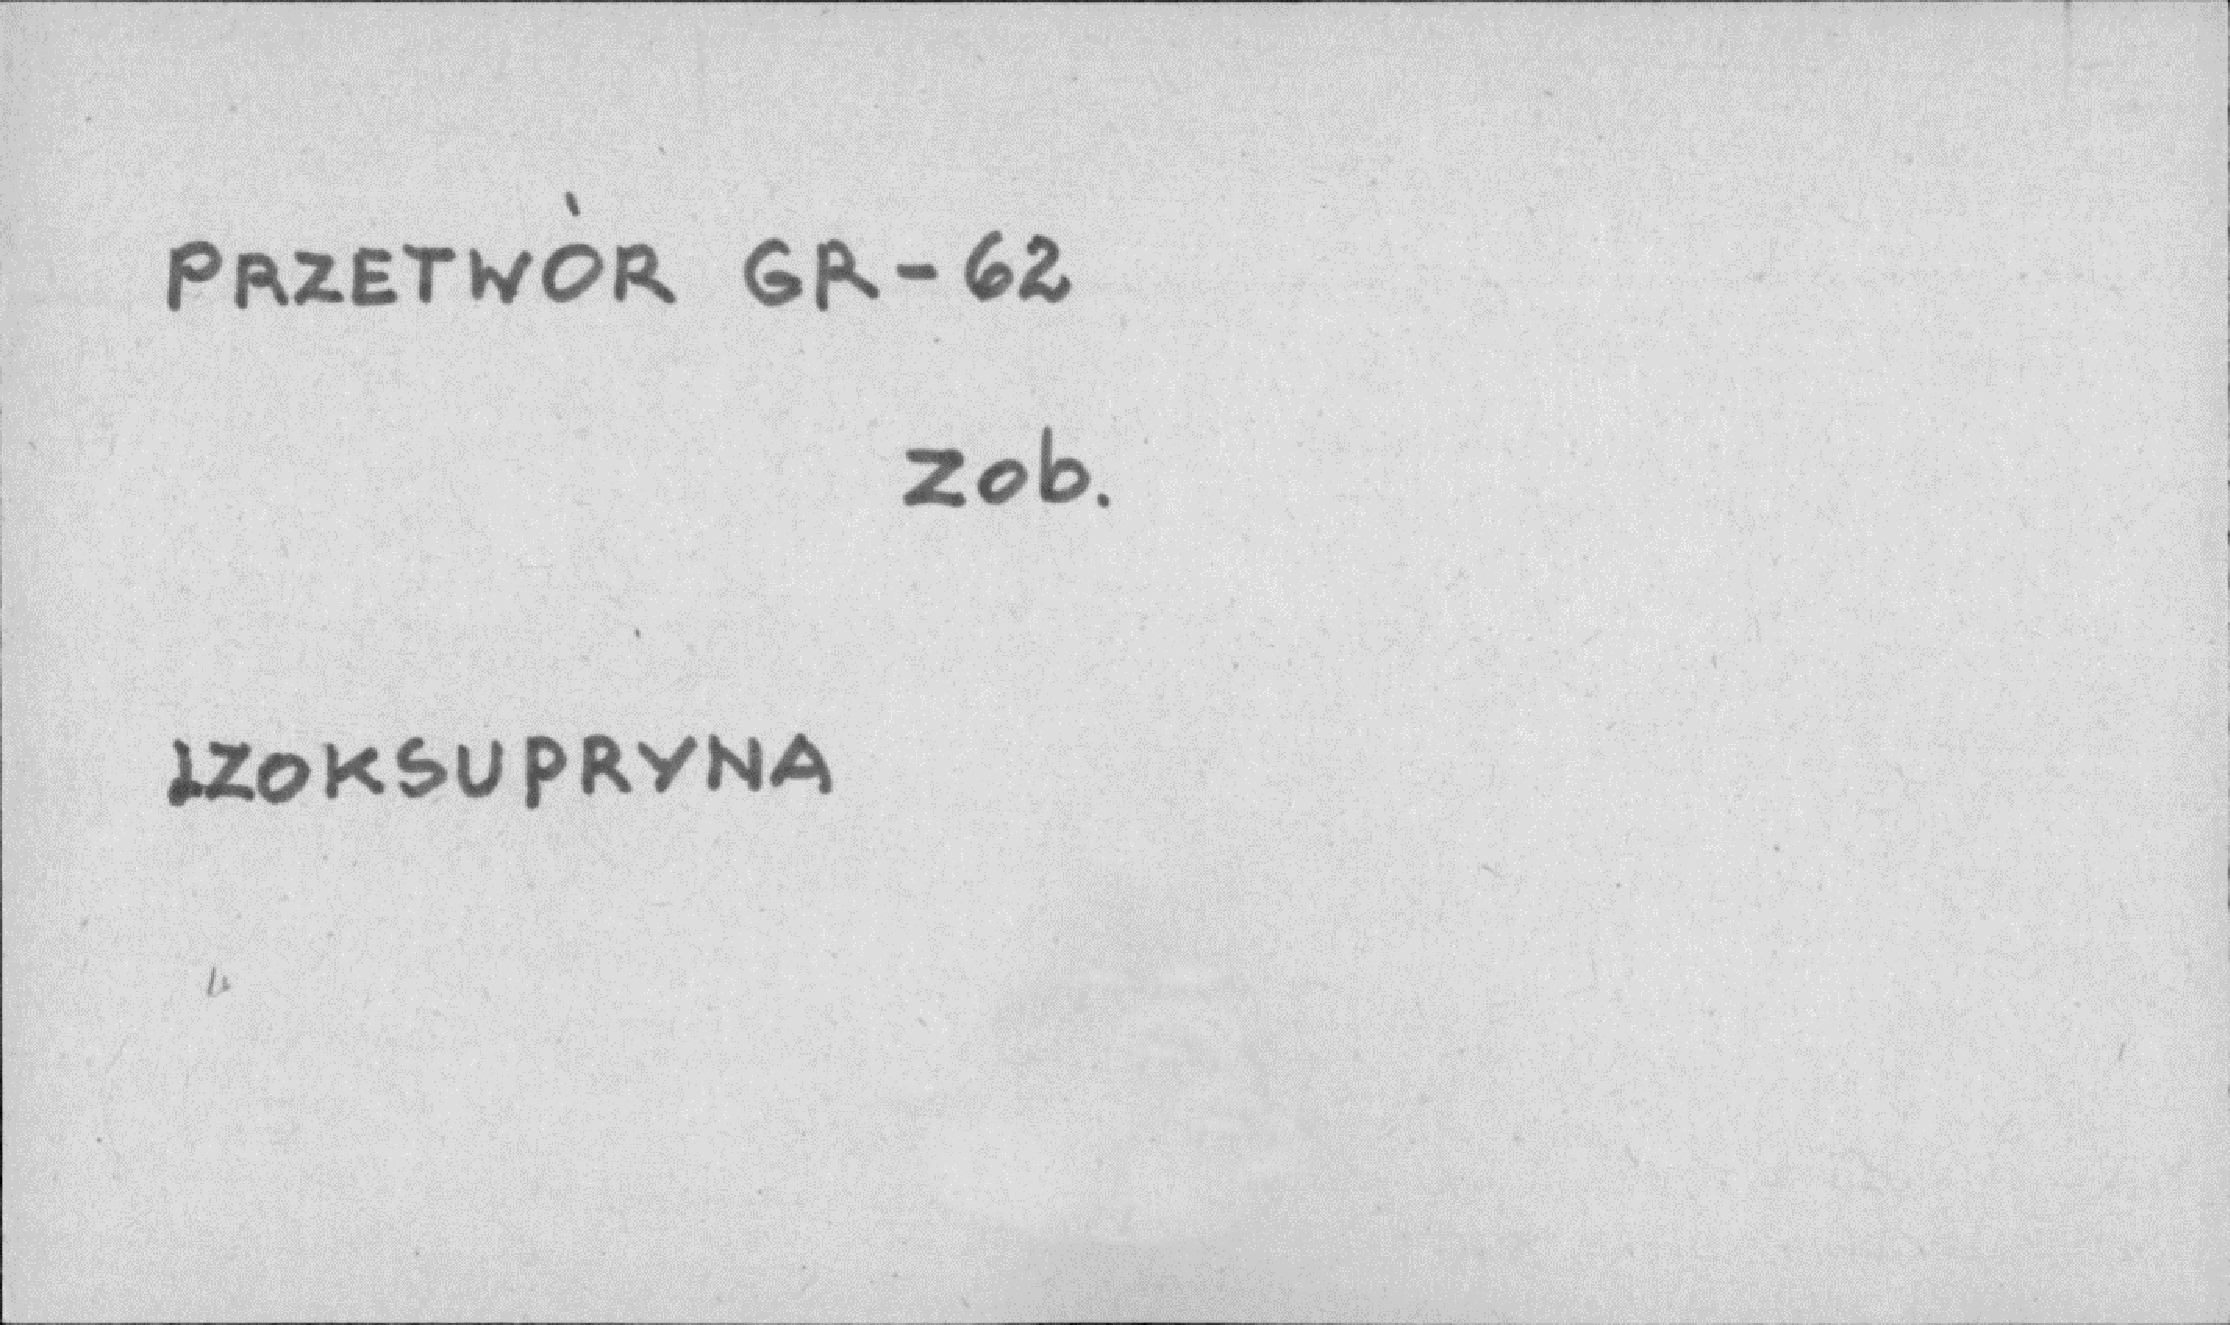 PRZETWÓR GR-62
zob.
IZOKSUPRYNA